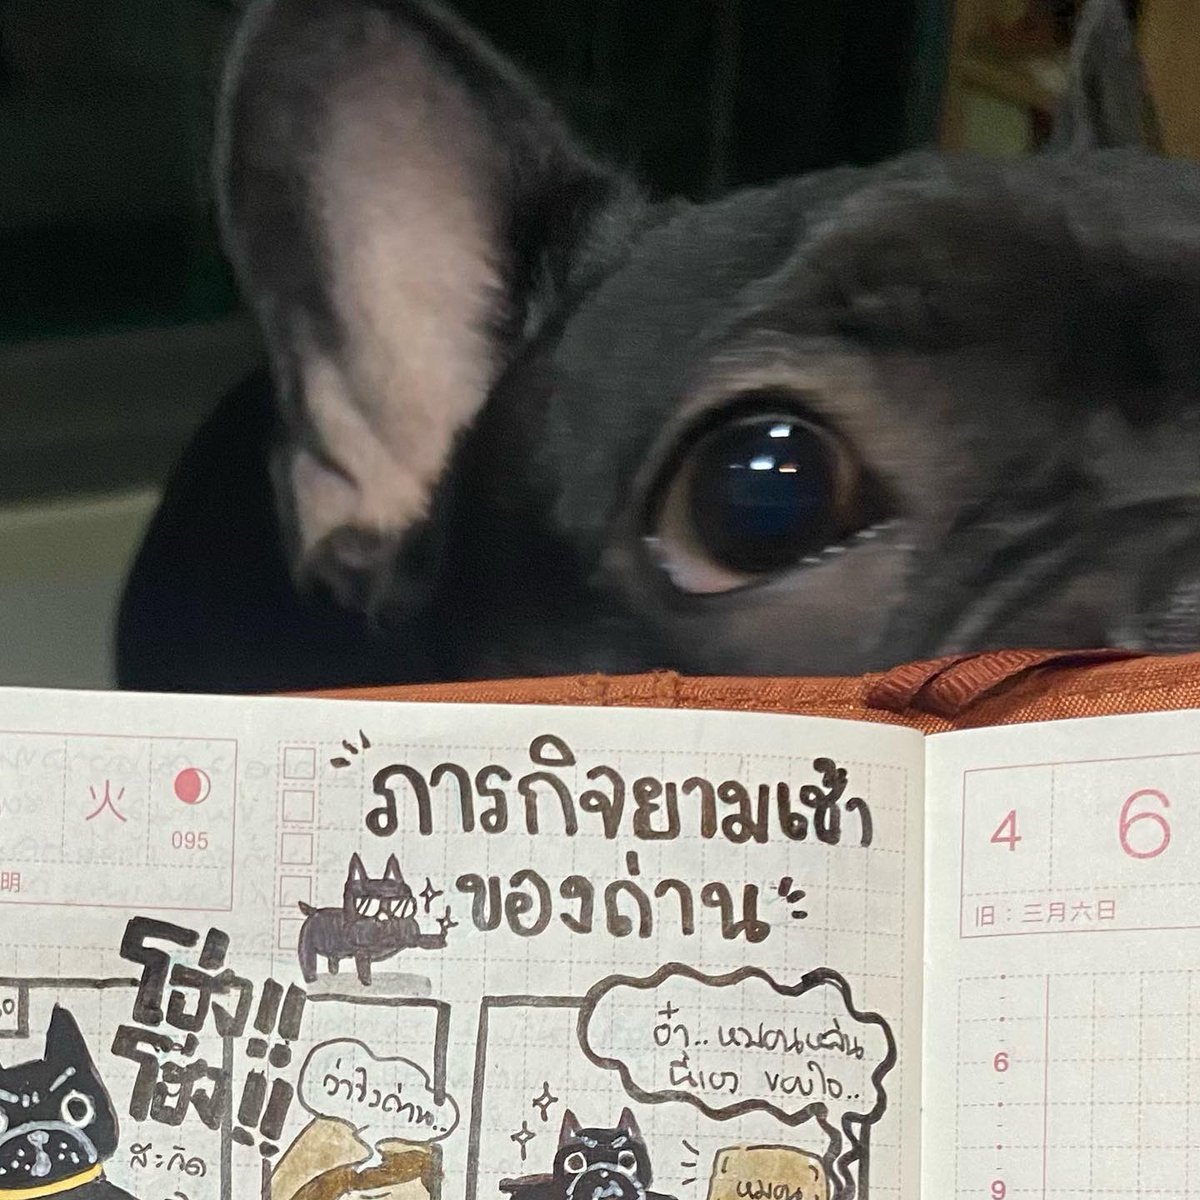 ภารกิจยามเช้า
ของถ่าน
火
095
明
4 6
旧：三月六日
โฮ่ง!!
โฮ่ง!!
ว่าไงถ่าน..
อ๋า..หมอนหล่น
นี่เอง ขอบใจ..
สะกิด
หมอน
6
9